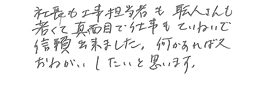 社長も工事担当者も 職人さんも
若くて真面目で仕事もていねいで
信頼出来ました。何かあればス
おねがいしたいと思います。